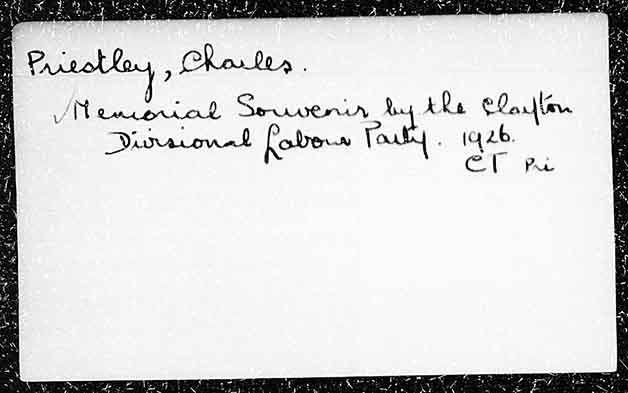 Priestley, Charles.
✓ Memorial Souvenir by the Clayton
Divisional Labour Party. 1926.
CT Pri